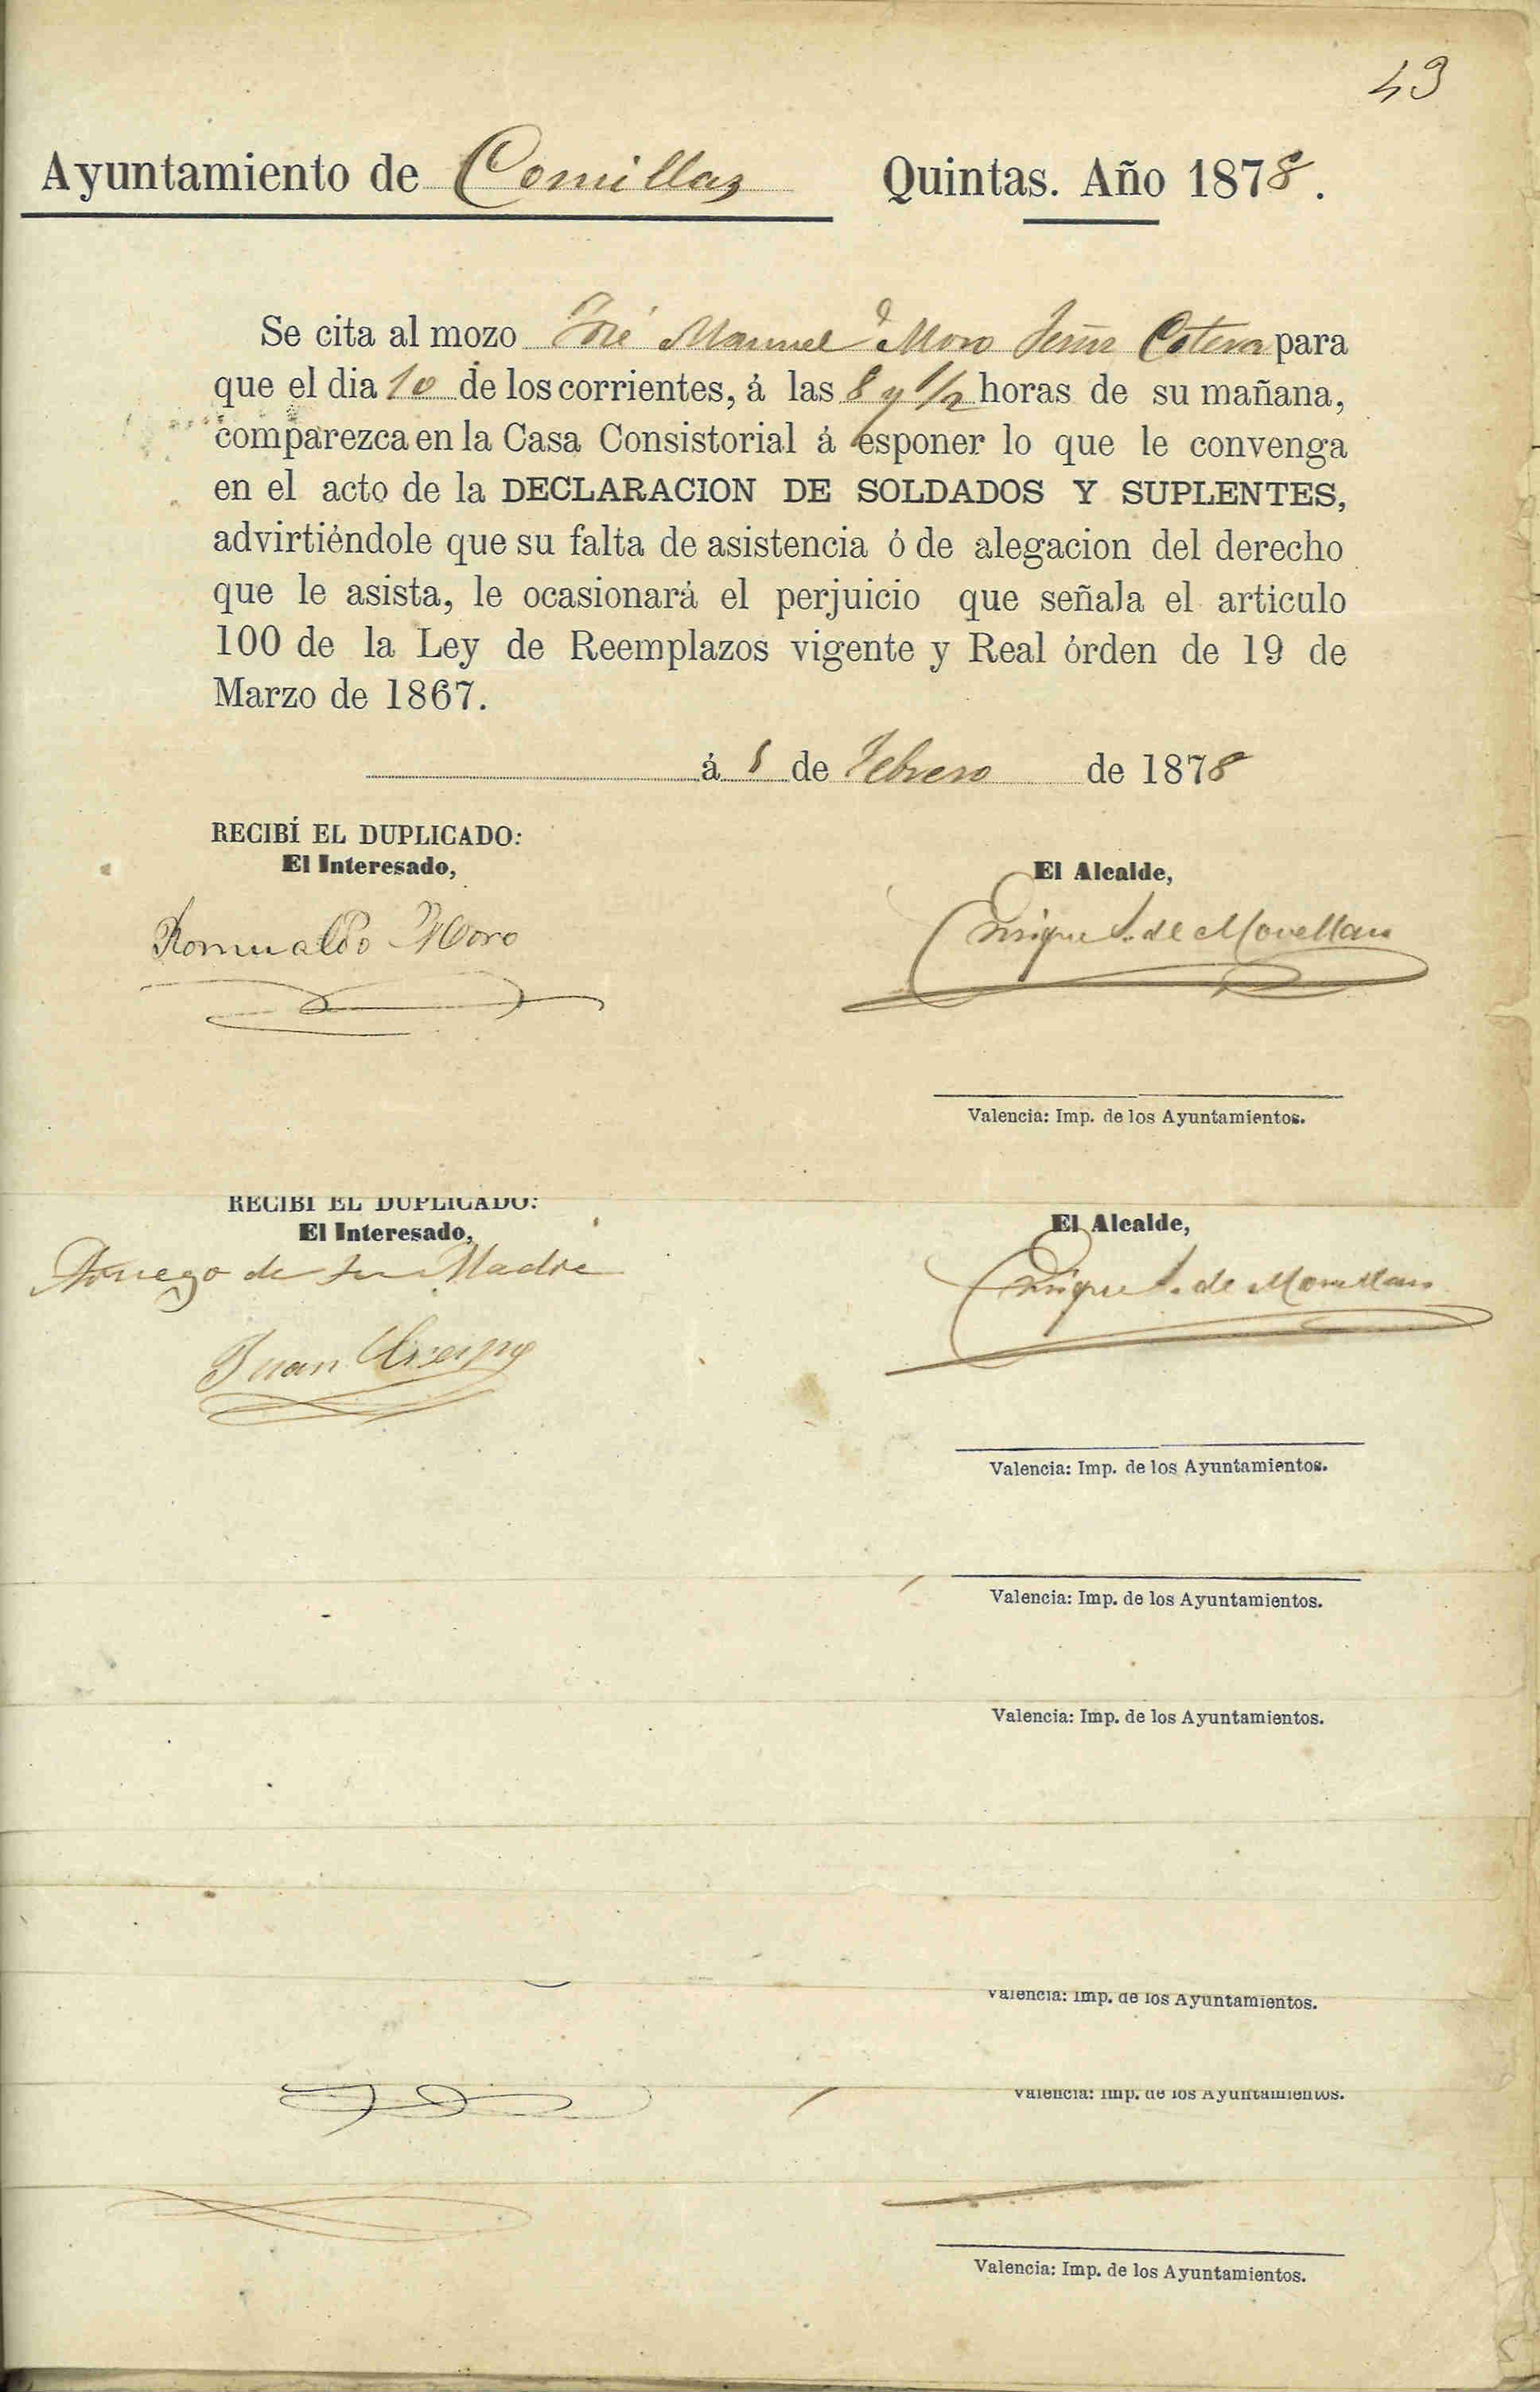 43
Ayuntamiento de Comillas Quintas. Año 1878.
Se cita al mozo José Manuel Moro Cotera para
que el dia 10 de los corrientes, á las 8 y 1/2 horas de su mañana,
comparezca en la Casa Consistorial á esponer lo que le convenga
en el acto de la DECLARACION DE SOLDADOS Y SUPLENTES,
advirtiéndole que su falta de asistencia ó de alegacion del derecho
que le asista, le ocasionará el perjuicio que señala el articulo
100 de la Ley de Reemplazos vigente y Real órden de 19 de
Marzo de 1867.
á 8 de Febrero de 1878
RECIBÍ EL DUPLICADO:
El Interesado,
El Alcalde,
Romualdo Moro
Enrique S. de Movellan
Valencia: Imp. de los Ayuntamientos.
RECIBÍ EL DUPLICADO:
El Interesado,
El Alcalde,
A ruego de su Madre
Enrique S. de Movellan
Juan Crespo
Valencia: Imp. de los Ayuntamientos.
Valencia: Imp. de los Ayuntamientos.
Valencia: Imp. de los Ayuntamientos.
Valencia: Imp. de los Ayuntamientos.
Valencia: Imp. de los Ayuntamientos.
Valencia: Imp. de los Ayuntamientos.